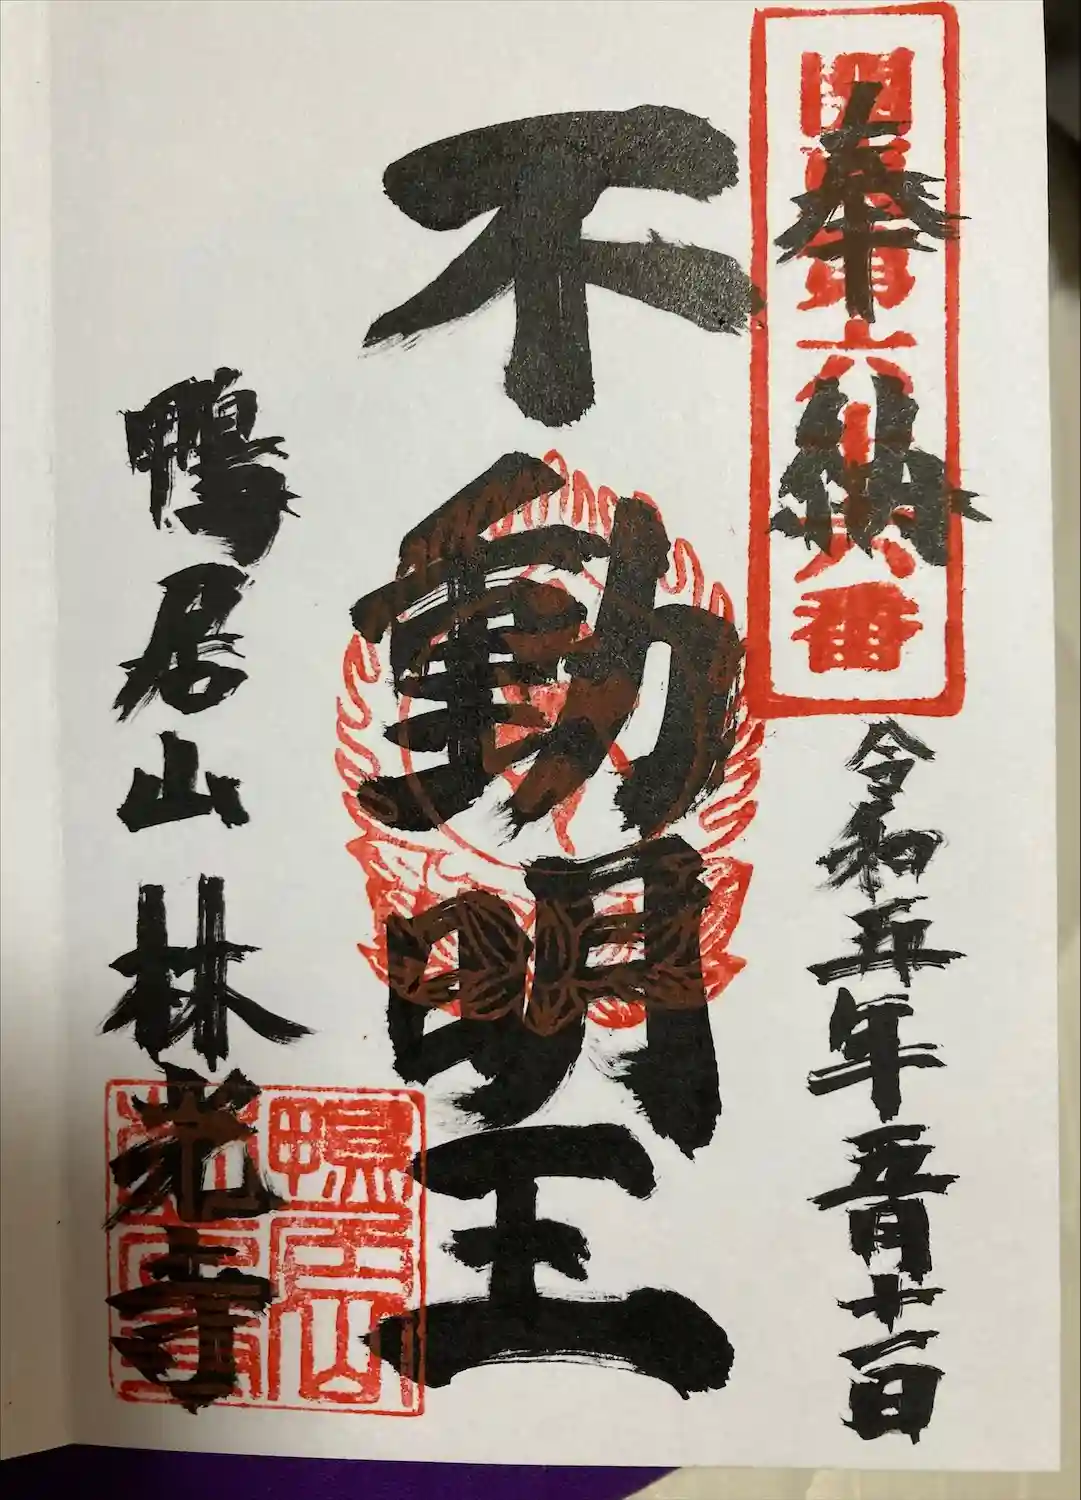 奉納
第六十六番
令和五年五月十二日
不動明王
鴨居山林光寺
鴨居山